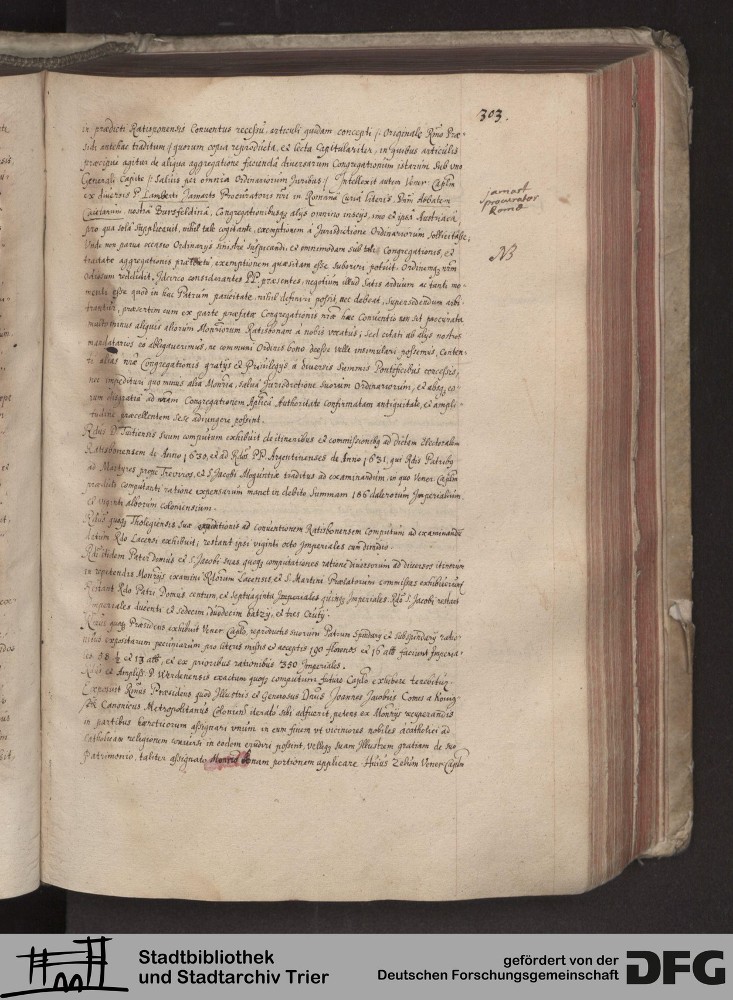 303.
in prædicti Ratisponensis Conventus recessu, articuli quidam concepti /: Originale Rmo Præ-
sidi antehac traditum :/ quorum copia reproducta, et lecta Capitulariter, in quibus articulis
præcipue agitur de aliqua aggregatione facienda diversarum Congregationum istarum Sub uno
Generali Capite /: Salvis per omnia Ordinariorum Juribus :/ Intellexit autem Vener. Caplm
ex diversis P. Lamberti Jamarts Procuratoris nri in Romana Curia literis, Dnm Abbatem
Caietanum, nostra Bursfeldina, Congregationibusq alijs omnino inscijs, imo et ipsa Austriaca,
pro qua sola Supplicavit, nihil tale cogitante, exemptionem à Jurisdictione Ordinariorum Sollicitasse,
Unde non parva occasio Ordinarijs sinistre suspicandi, et omnimodam sub tali Congregationis, et
tractatæ aggregationis prætextu, exemptionem quæsitam esse suboriri potuit, Ordinemq nrm
Odiosum reddidit. Idcirco considerantes PP. præsentes, negotium illud Satis arduum ac tanti mo-
menti esse quod in hac Patrum paucitate, nihil definiri possit, nec debeat, Supersedendum arbi-
trantur, præsertim cum ex parte præfatæ Congregationis nræ hæc Conventio non sit procurata
multominus aliquis aliorum Monriorum Ratisbonam à nobis vocatus; sed citati ab alijs nostros
mandatarios eo ablegaverimus, ne communi Ordinis bono deesse velle insimulari possemus, Conten-
ti alias nræ Congregationis gratijs et Privilegijs à diversis Summis Pontificibus concessis,
nec impedituri quo minus alia Monria, salva Jurisdictione Suorum Ordinariorum, et absq eo-
rum disgratia ad nram Congregationem Aplica Authoritate confirmatam antiquitate, et ampli-
tudine præcellentem sese adiungere possent.
Rdus D. Tuitiensis suum computum exhibuit de itineribus et commissionibq ad dictam Electoralem
Ratisbonensem de Anno 1630, et ad Rdos PP. Argentinenses de Anno 1631, qui Rdis Patribq
ad Martyres prope Treviros, et S. Jacobi Moguntiæ traditus ad examinandum, in quo Vener. Caplm
prædicti computanti ratione expensarum manet in debito Summam 186 dalerorum Imperialium,
et viginti alborum coloniensium.
Rdus quoq Tholegiensis suæ ad conventionem Ratisbonensem computum ad examinandu
datum Rdo Lacensi exhibuit; restant ipsi viginti octo Imperiales cum dimidio.
Rdi itidem Pater Domus et S. Jacobi suas quoq computationes ratione diversorum ad diversos itinerum
in repetendis Monrijs examini Rdorum Lacensis, et S. Martini Prælatorum commissas exhibuerunt
Restant Rdo Patri Domus centum, et Septuaginta Imperiales quinq Imperiales. Rdo S. Jacobi restant
Imperiales ducenti et Sedecim duodecim batzij, et tres Crutij.
Rmus quoq Præsidens exhibuit Vener. Caplo, reproductis suorum Patrum Spirensiu et subspirensiu ratio-
nibus expositarum pecuniarum pro literis missis et acceptis 190 florenos et 16 alb faciunt Imperia-
les 58 ½ et 13 alb, et ex prioribus rationibus 350 Imperiales.
Rdus et Ampliss. P. Werdenensis exactum quoq computum futuro Caplo exhibere tercvetur.
Exposuit Rmus Præsidens quod Illustris et Generosus Dnus Joannes Jacobus Comes a König-
Canonicus Metropolitanus Coloniens. iterato sibi adfuerit, petens ex Monrijs recuperandis
in partibus hæreticorum assignari unum in eum finem ut viciniores nobiles acatholici ad
Catholicam religionem conversi in eodem erudiri possent, vellq suam Illustrem gratiam de suo
Patrimonio, taliter assignato Monrio bonam portionem applicare. Huius Zelum Vener. Caplm
jamart
procurator
Romæ
NB
Stadtbibliothek
und Stadtarchiv Trier
gefördert von der
Deutschen Forschungsgemeinschaft
DFG